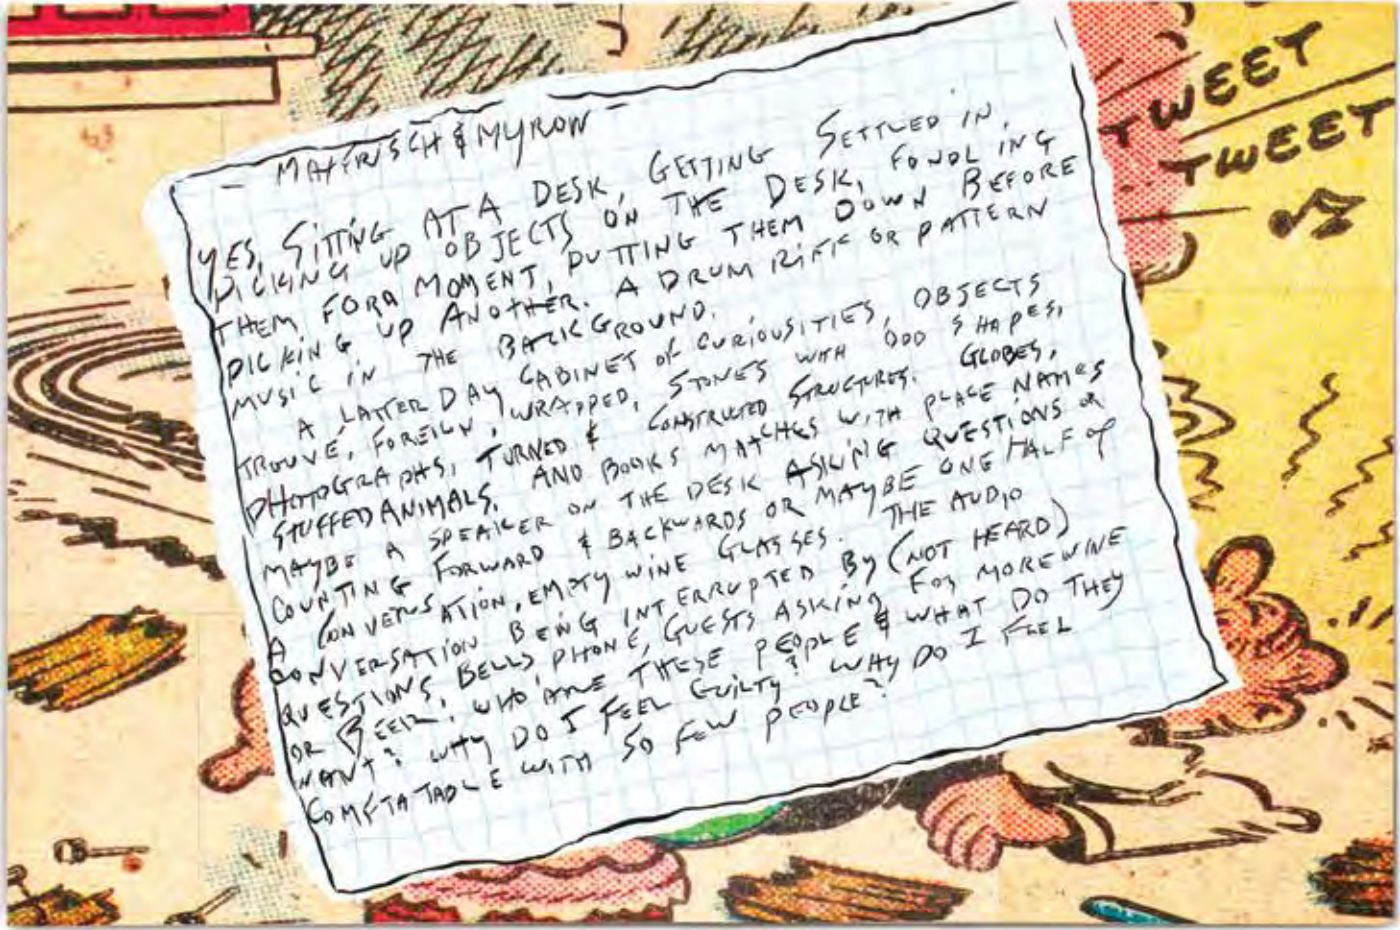 TWEET
TWEET
— & MYRON
YES, SITTING AT A DESK, GETTING SETTLED IN,
PICKING UP OBJECTS ON THE DESK, FONDLING
THEM FOR A MOMENT, PUTTING THEM DOWN BEFORE
PICKING UP ANOTHER. A DRUM RIFF OR PATTERN
MUSIC IN THE BACKGROUND.
A LATTER DAY CABINET OF CURIOUSITIES, OBJECTS
TROUVÉ, FOREIGN, WRAPPED, STONES WITH ODD SHAPES,
PHOTOGRAPHS, TURNED & CONSTRUCTED STRUCTURES. GLOBES,
STUFFED ANIMALS. AND BOOKS MATCHES WITH PLACE NAMES
MAYBE A SPEAKER ON THE DESK ASKING QUESTIONS OR
COUNTING FORWARD & BACKWARDS OR MAYBE ONE HALF OF
A CONVERSATION, EMPTY WINE GLASSES. THE AUDIO
CONVERSATION BEING INTERRUPTED BY (NOT HEARD)
QUESTIONS, BELLS, PHONE, GUESTS ASKING FOR MORE WINE
OR BEER. WHO ARE THESE PEOPLE & WHAT DO THEY
WANT? WHY DO I FEEL GUILTY? WHY DO I FEEL
COMFTATABLE WITH SO FEW PEOPLE?